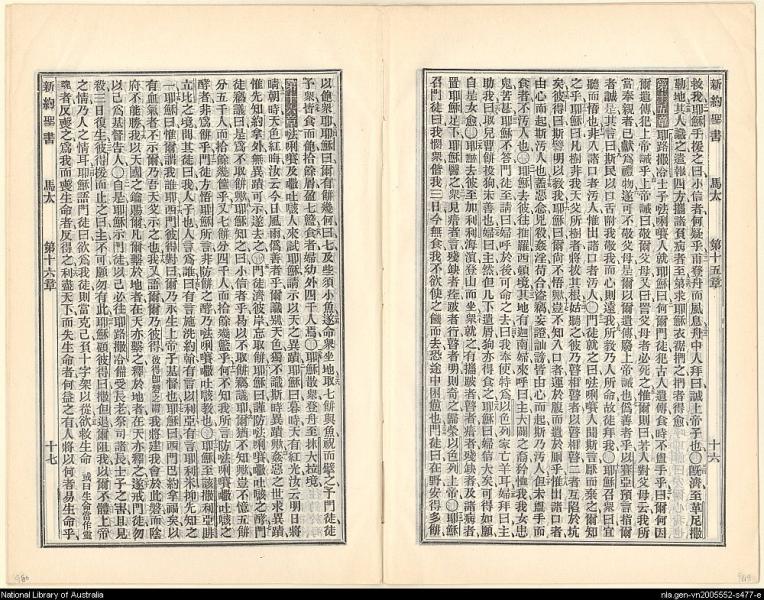 新約聖書　馬太　第十五章　十六
救我耶穌手援之曰小信者乎何疑乎甫登舟而風息舟中人拜曰誠上帝子也〇既濟至革尼撒
勒地其人識之遣報四方攜諸負病者至第求耶穌衣裾捫之捫者得愈
第十五章
耶路撒冷士子𠵽唎㘔人就耶穌曰何爾門徒犯古人遺傳食時不盥手乎曰爾何因
爾遺傳犯上帝誡乎上帝誡曰敬爾父母又曰詈父母者必死之惟爾則曰若人對父母云我所
當奉親者已獻爲禮物遂可不敬父母是爾以爾遺傳廢上帝誡也僞善者乎以賽亞預言指爾
者誠是其言曰斯民以口舌附我敬我而心則遠我所教乃人所命故徒拜我〇耶穌召衆曰宜
聽而悟也非入諸口者汚人惟出諸口者汚人〇門徒就之曰𠵽唎㘔人聞斯言厭而棄之爾知
之乎耶穌曰凡樹非我天父所樹者將拔其根姑聽之彼乃瞽相瞽者以瞽相瞽二者互陷於坑
矣彼得曰斯譬明以教我耶穌曰爾尚不悟與豈不知入口者運於腹而遺於厠乎惟出諸口者
由心而起斯汚人也蓋惡念兇殺姦淫苟合盜竊妄證訕謗皆由心而起斯乃汚人但未盥手而
食者不汚人也〇耶穌去彼往推羅西頓境其地有迦南婦來呼曰主大闢之裔矜恤我我女患
鬼苦甚耶穌不答門徒至請曰婦呼於後可命之去曰我奉使特爲以色列家亡羊耳婦拜曰主
助我曰取兒曹餅投狗未善也婦曰主然但几下遺屑狗亦得食之耶穌曰婦信大矣可得如願
自是女愈〇耶穌去彼至加利利海濱登山而坐衆就之有攜跛者瞽者瘖者殘缺者及諸病者
置耶穌足下耶穌醫之衆見瘖者言殘缺者痊跛者行瞽者明則奇之歸榮以色列上帝〇耶穌
召門徒曰我憫衆偕我三日今無食我不欲使之饑而去恐途中困憊也門徒曰在野安得多餅
新約聖書　馬太　第十六章　十七
以飽衆耶耶穌曰爾有餅幾何曰七及些須小魚遂命衆坐地取七餅與魚祝而擘之予門徒徒
予衆皆食而飽拾餘屑盈七籃食者婦幼外四千人焉〇耶穌散衆登舟至抹大拉境
第十六章
𠵽唎㘔及𡀲吐㗇人來試耶穌請示以天之異蹟耶穌曰暮時天有紅光汝云明日將
晴朝時天色紅晦汝云今日風雨僞善者乎爾識別天色獨不識斯時異蹟與姦惡之世求異蹟
惟先知約拿外無異蹟可示遂去之〇門徒濟彼岸忘取餅耶穌曰謹防𠵽唎㘔𡀲吐㗇之酵門
徒竊議曰是爲不取餅與耶穌知之曰小信者乎曷以不取餅竊議耶爾猶不知與豈不憶五餅
分五千人而拾餘幾筐乎又七餅分四千人而拾餘幾籃乎何不知我所言防𠵽唎㘔𡀲吐㗇之
酵者非爲餅乎門徒方悟耶穌所言非防餅之酵乃𠵽唎㘔𡀲吐㗇教也〇耶穌至該撒利亞腓
立比之境問其徒曰我人子也人言爲誰曰有言施洗約翰有言以利亞有言耶利米抑先知之
一耶穌曰惟爾謂我誰耶西門彼得對曰爾乃永生上帝子基督也耶穌曰西門巴約拿福矣以
有血氣者不示爾乃吾天父示之也我又語爾爾乃彼得彼得即磐之謂我將建我會於此磐而陰
府不能勝我以天國之鑰賜爾凡爾繫於地者在天亦繫之釋於地者在天亦釋之遂戒門徒勿
以己爲基督告人〇自是耶穌示門徒以己必往耶路撒冷備受長老祭司諸長士子之害且見
殺三日復生彼得援而止之曰主不可願勿有此耶穌顧彼得曰撒但退爾阻我以爾不體上帝
之情乃人之情耳耶穌語門徒曰欲爲我徒則當克己負十字架以從欲救生命或曰生命當作靈
魂者反喪之爲我而喪生命者反得之利盡天下而失生命者何益之有人將以何者易生命乎
National Library of Australia
nla.gen-vn2005552-s477-e